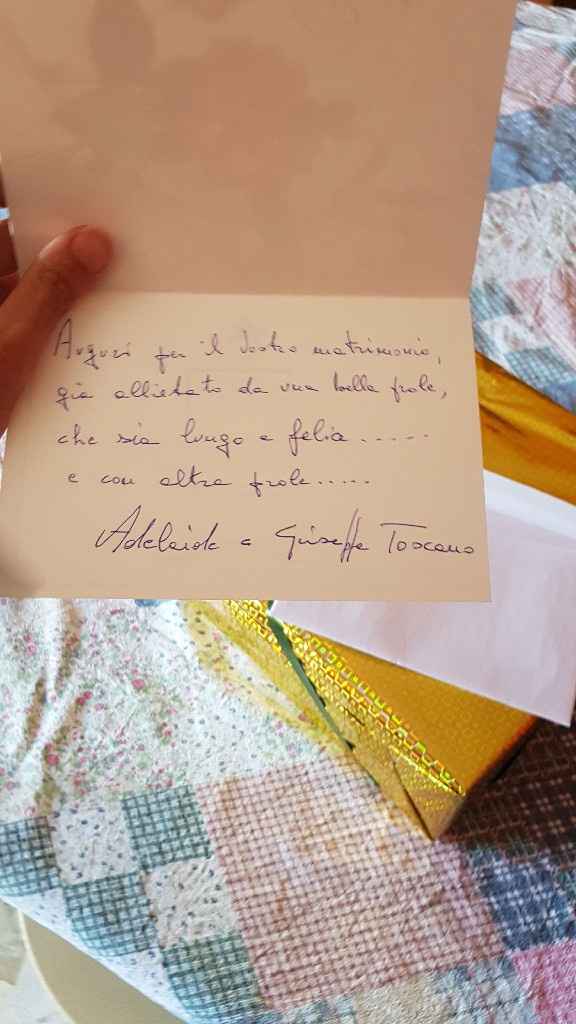 Auguri per il vostro matrimonio,
già allietato da una bella prole,
che sia lungo e felice.....
e con altra prole.....
Adelaide e Giuseppe Toscano